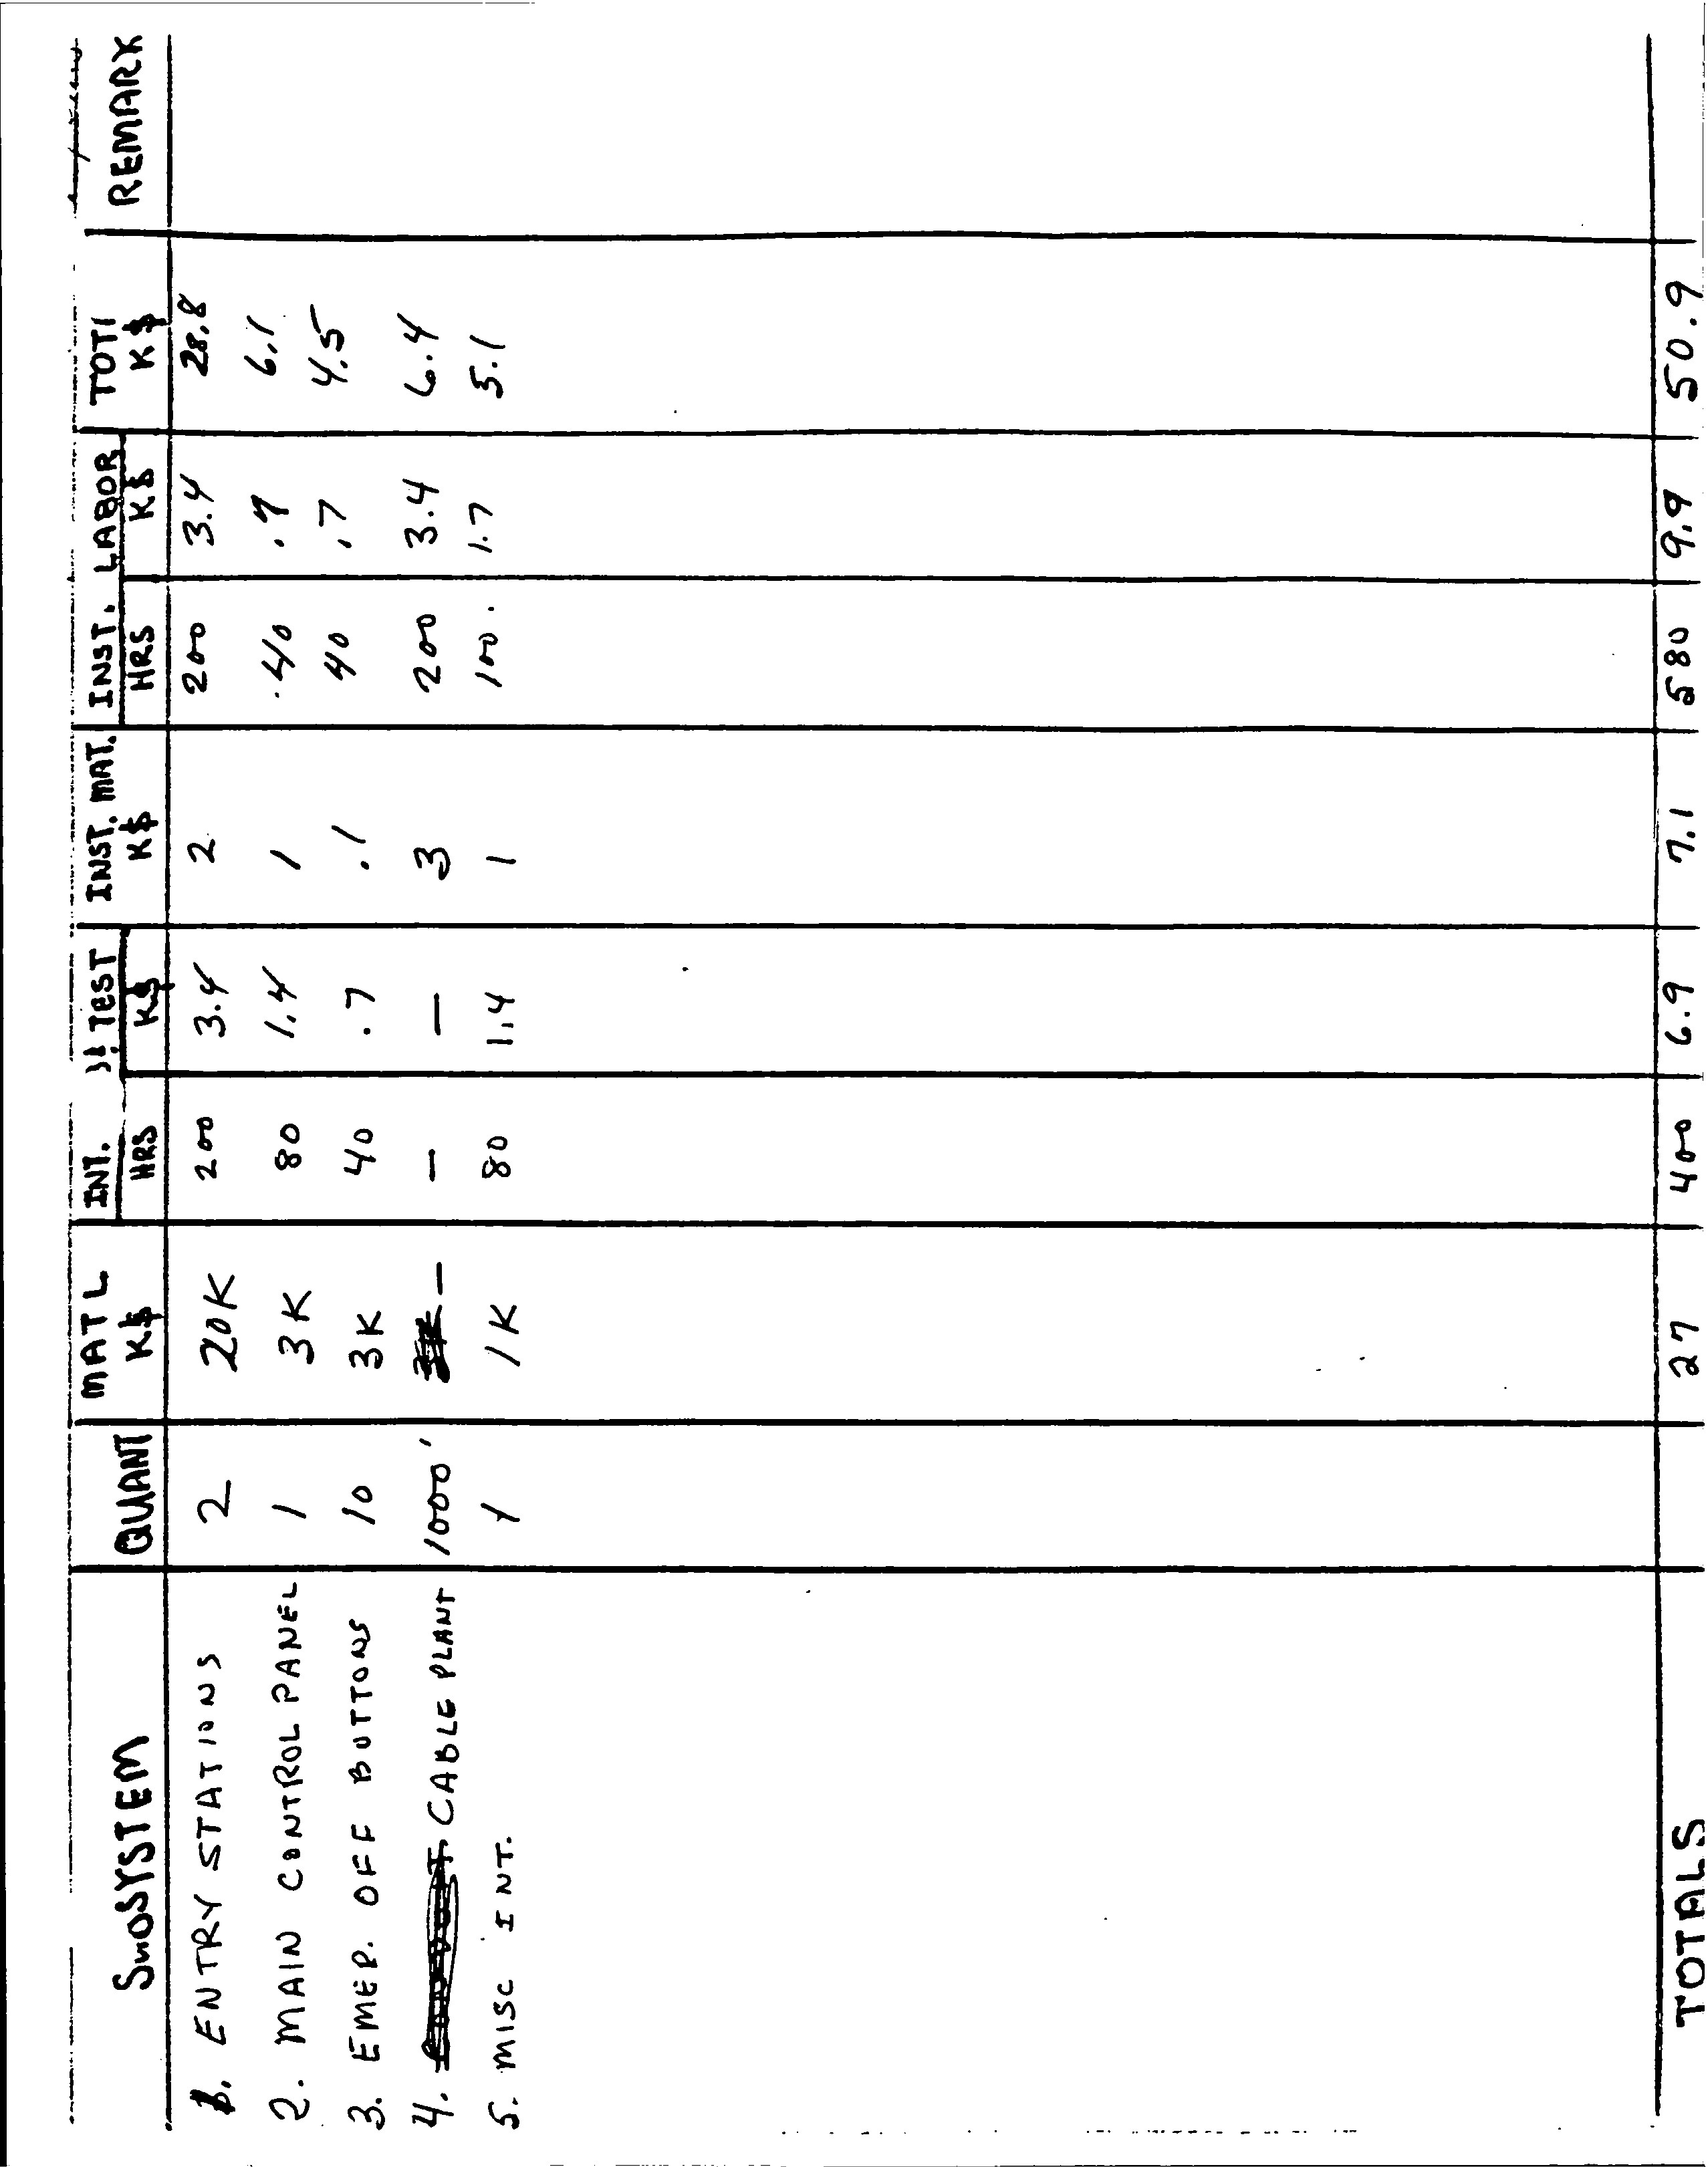 SUBSYSTEM QUANT MATL K$ INT. TEST HRS K$ INST. MAT. K$ INST. LABOR HRS K$ TOTL K$ REMARK
1. ENTRY STATIONS 2 20K 200 3.4 2 200 3.4 28.8
2. MAIN CONTROL PANEL 1 3K 80 1.4 1 40 .7 6.1
3. EMER. OFF BUTTONS 10 3K 40 .7 .1 40 .7 4.5
4. CABLE PLANT 1000' — — — 3 200 3.4 6.4
5. MISC INT. 1 1K 80 1.4 1 100 1.7 5.1
TOTALS 27 400 6.9 7.1 580 9.9 50.9